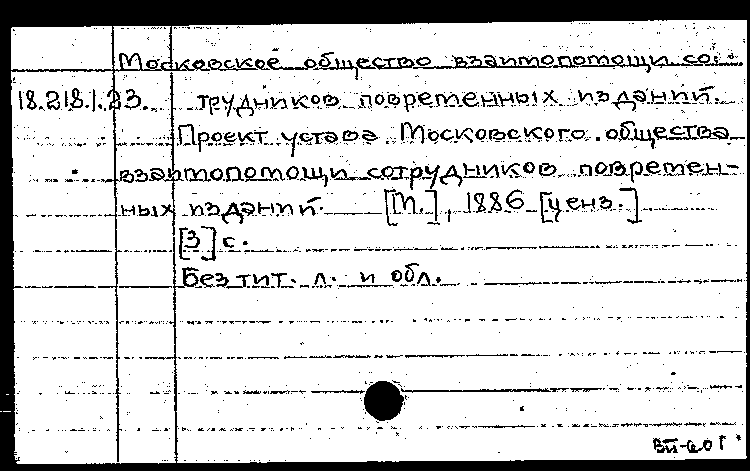 Московское общество взаимопомощи со-
18.218.1.23. трудников повременных изданий.
Проект устава Московского общества
взаимопомощи сотрудников повремен-
ных изданий. [М.], 1886 [ценз.]
[3] с.
Без тит. л. и обл.